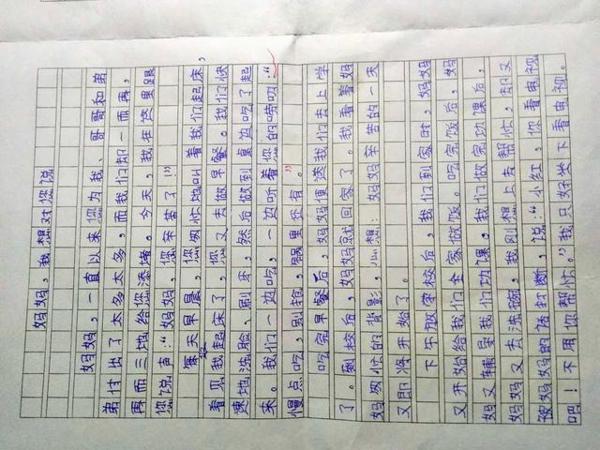 妈妈，我想对您说
妈妈，一直以来您为我、哥哥和弟
弟付出了太多太多，而我们却一而再，
再而三地给您添堵。今天，我在这里跟
您说声：“妈妈，您辛苦了！”
每天早晨，您匆忙地叫着我们起床，
看见我起床了，您又去做早餐。我们快
速地洗脸、刷牙，然后做到桌边吃了起
来。我们一边吃，一边听着您的唠叨：“
慢点吃，别抢，锅里还有。”
吃完早餐后，妈妈便送我们去上学
了。到校后，妈妈就回家了。我看着妈
妈匆忙的背影，心想：妈妈辛苦的一天
又即将开始了。
下午放学校后，我们到家时，妈妈
又开始给我们全家做饭。吃完饭后，妈
妈又辅导我们功课，我们做完功课后，
妈妈又去洗碗，我刚想上去帮忙，却又
被妈妈的话打断，说：“小红，你看电视
吧！不用你帮忙。”我只好坐下看电视。